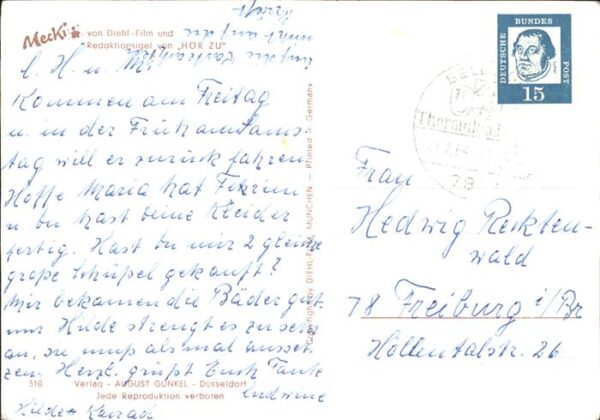 Mecki von Diehl-Film und
Redaktionsigel von „HÖR ZU"
L. H. u. M.
Kommen am Freitag
u. in der Früh am Sams-
tag will er zurück fahren.
Hoffe Maria hat Ferien
u. du hast deine Kleider
fertig. Hast du mir 2 gleiche
große Schüßel gekauft?
Mir bekamen die Bäder gut
nur Hilde strengt es zu sehr
an, sie muß als mal ausset-
zen. Herzl. grüßt Euch Tante
Ludwine
Hilde + Konrad
310 Verlag - AUGUST GUNKEL - Düsseldorf
Jede Reproduktion verboten
Copyright by DIEHL-FILM MÜNCHEN — Printed in Germany
DEUTSCHE BUNDESPOST
15
BELL
Thermal
78
Frau
Hedwig Reckten-
wald
78 Freiburg i/Br
Höllentalstr. 26